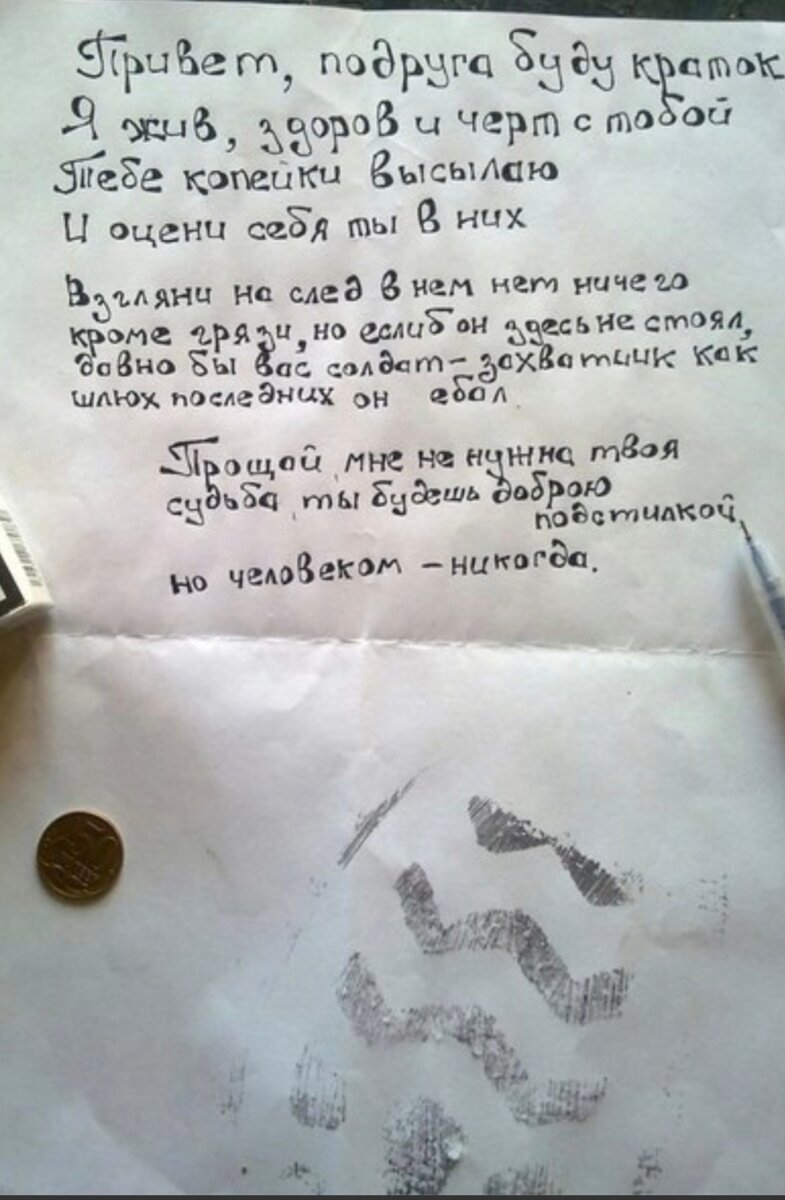 Привет, подруга буду краток
Я жив, здоров и черт с тобой
Тебе копейки высылаю
И оцени себя ты в них
Взгляни на след в нем нет ничего
кроме грязи, но еслиб он здесь не стоял,
давно бы вас солдат-захватчик как
шлюх последних он ебал.
Прощай мне не нужна твоя
судьба, ты будешь доброю
подстилкой,
но человеком - никогда.